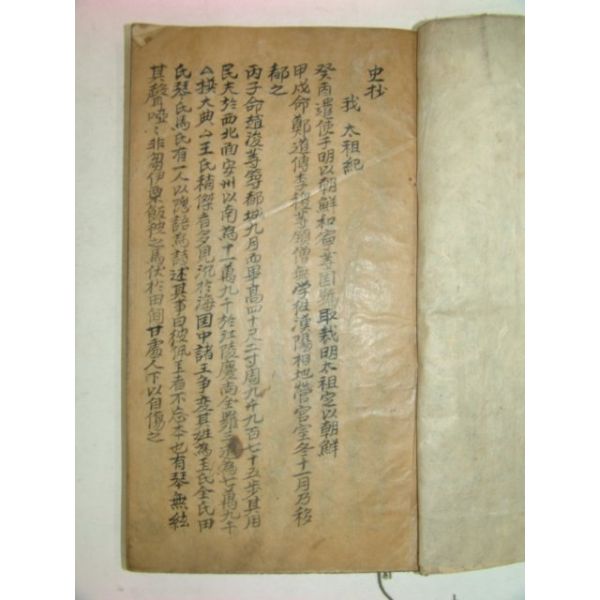 史抄
我 太祖紀
癸酉遣使于明以朝鮮和寧等國號取裁明太祖定以朝鮮
甲戌命鄭道傳李稷等領僧無学往漢陽相地營宮室冬十一月乃移
都之
丙子命趙浚等築都城九月而畢高四十尺二寸周九千九百七十五步其用
民夫於西北南安州以南為十一萬九千於江陵慶尚全羅三道為七萬九千
公撰大典 王氏稱傑者多見沉於海国中諸王爭変其姓為玉氏全氏田
氏琴氏馬氏有一人以 語為詩述其事曰彼佩玉者不忘本也有琴無絃
其聲啞 非芻伊粟飯秣之馬伏於田個甘處人下以自傷之